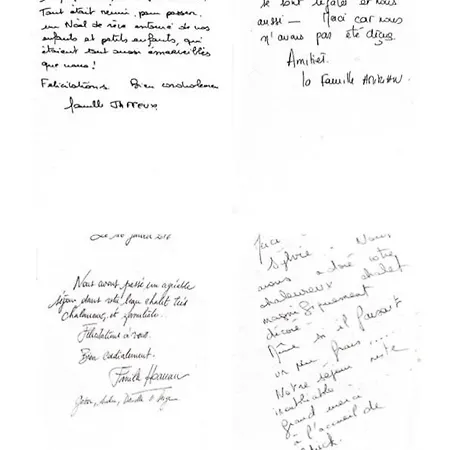 Tout était réuni pour passer
un Noël de rêve entouré de nos
enfants et petits enfants, qui
étaient tout aussi émerveillés
que nous !
Félicitations. Bien cordialement
famille
se sont régalés et nous
aussi — Merci car nous
n'avons pas été déçus
Amitiés.
la Famille
janvier
Nous avons passé un agréable
séjour dans votre beau chalet très
chaleureux et familial.
Félicitations à vous.
Bien cordialement.
Famille
Merci
Sylvie. Nous
avons adoré votre
chaleureux chalet
magnifiquement
décoré.
Même si il faisait
un peu frais ...
Notre séjour reste
inoubliable.
Grand merci
à l'accueil de